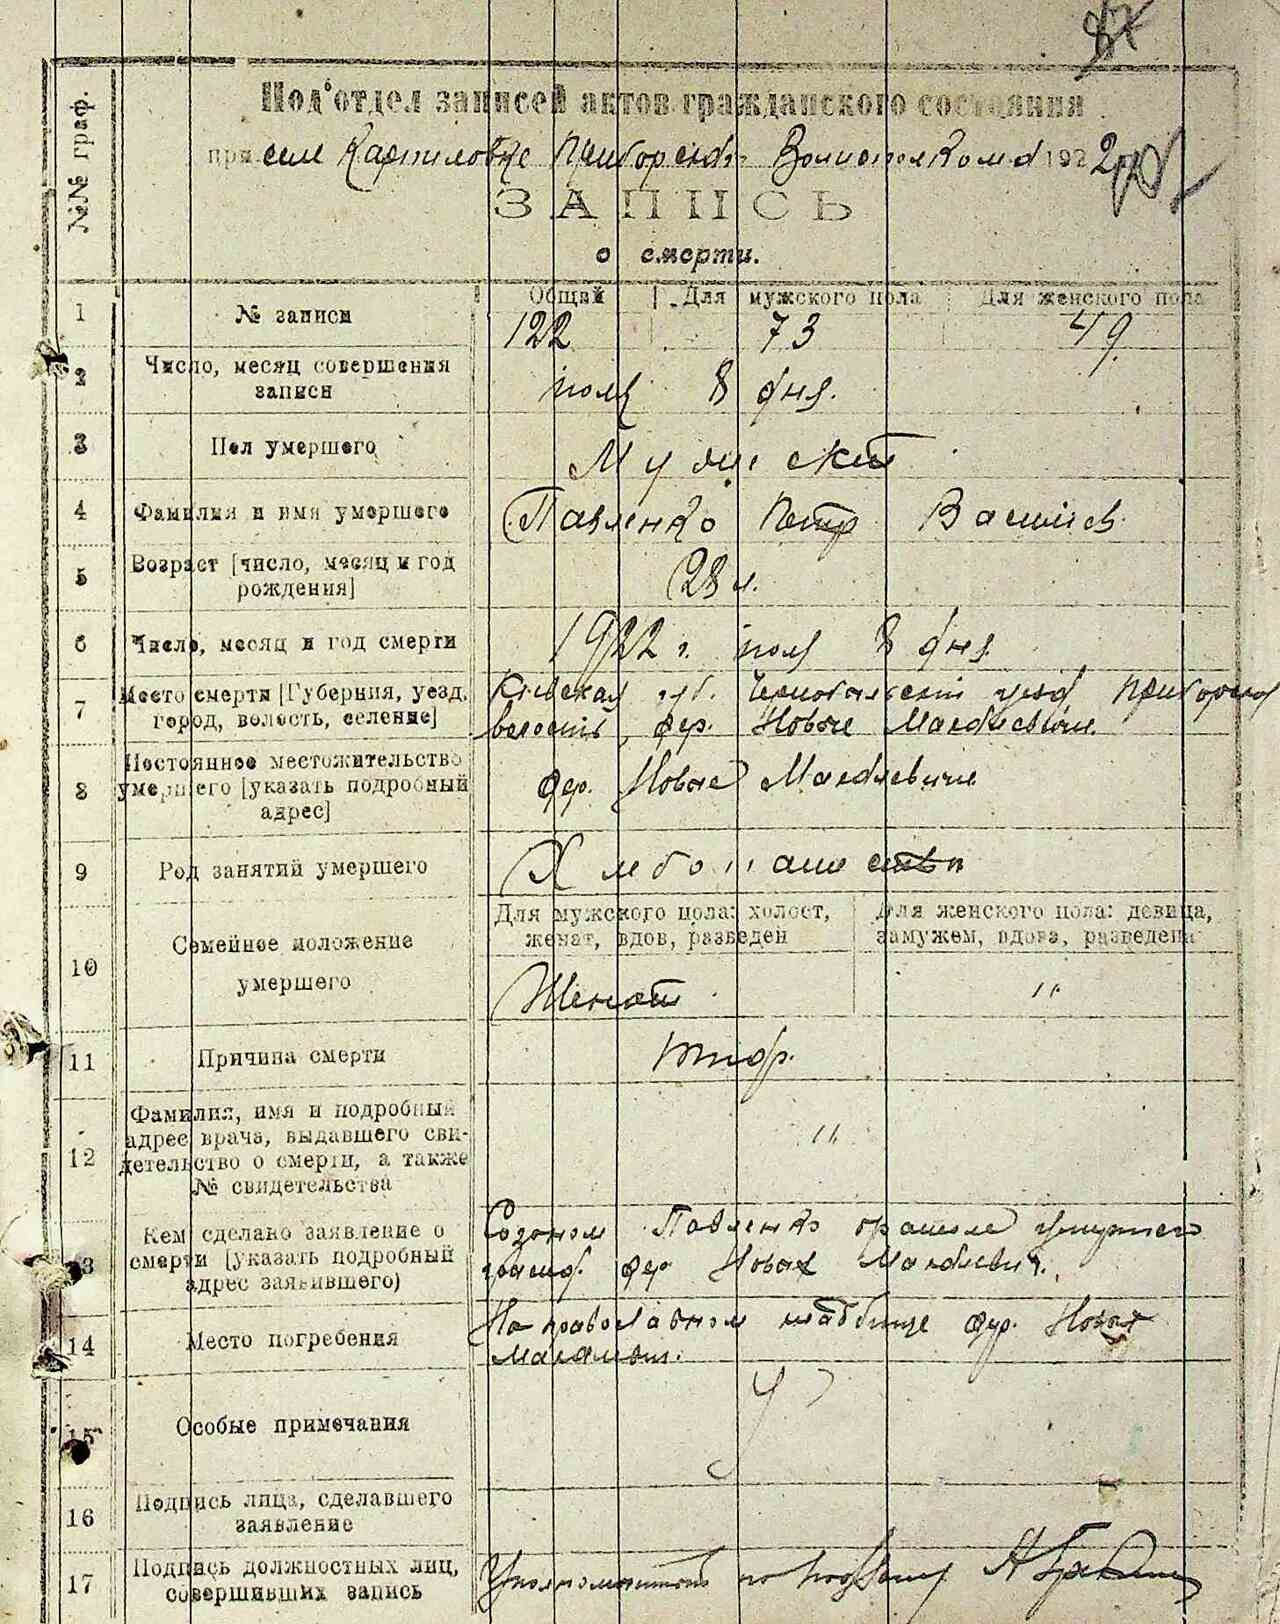 №№ граф.
Под'отдел записей актов гражданского состояния
при селе Карпиловке Приборск. Волисполкома 1922
ЗАПИСЬ
о смерти.
Общий Для мужского пола Для женского пола
1 № записи 122 73 49
2 Число, месяц совершения записи июля 8 дня.
3 Пол умершего Мужский
4 Фамилия и имя умершего Павленко Петр Васильев.
5 Возраст [число, месяц и год рождения] 28 л.
6 Число, месяц и год смерти 1922 г. июля 8 дня.
7 Место смерти [Губерния, уезд, Киевская губ. Чернобыльский уезд Приборская
город, волость, селение] волость, дер. Новые Макалевичи.
8 Постоянное местожительство
умершего [указать подробный дер. Новые Макалевичи
адрес]
9 Род занятий умершего Хлебопашество
Для мужского пола: холост, Для женского пола: девица,
женат, вдов, разведен замужем, вдова, разведена
10 Семейное положение
умершего Женат. "
11 Причина смерти тиф.
12 Фамилия, имя и подробный
адрес врача, выдавшего сви-
детельство о смерти, а также "
№ свидетельства
13 Кем сделано заявление о Созоном Павленко умершего
смерти [указать подробный дер Новые Макалевич.
адрес заявившего)
14 Место погребения На православном кладбище дер. Новые
Макалевич.
15 Особые примечания
16 Подпись лица, сделавшего
заявление
17 Подпись должностных лиц, Уполномоченный по
совершивших запись